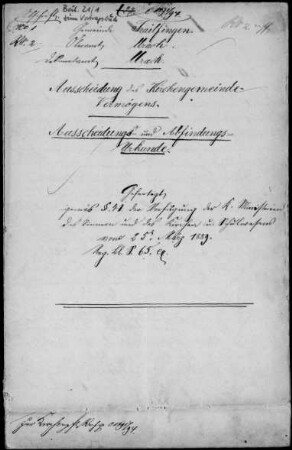 No 1
No. 2
Gemeinde
Oberamt Urach
Urach.
Ausscheidung des Kirchengemeinde-
Vermögens.
Ausscheidungs- und Abfindungs-
Urkunde.
Gefertigt,
gemäß §. 41 der Verfügung der K. Ministerien
des Innern und des Kirchen u. Schulwesens
vom 25. März 1889.
Reg. Bl. S. 65.